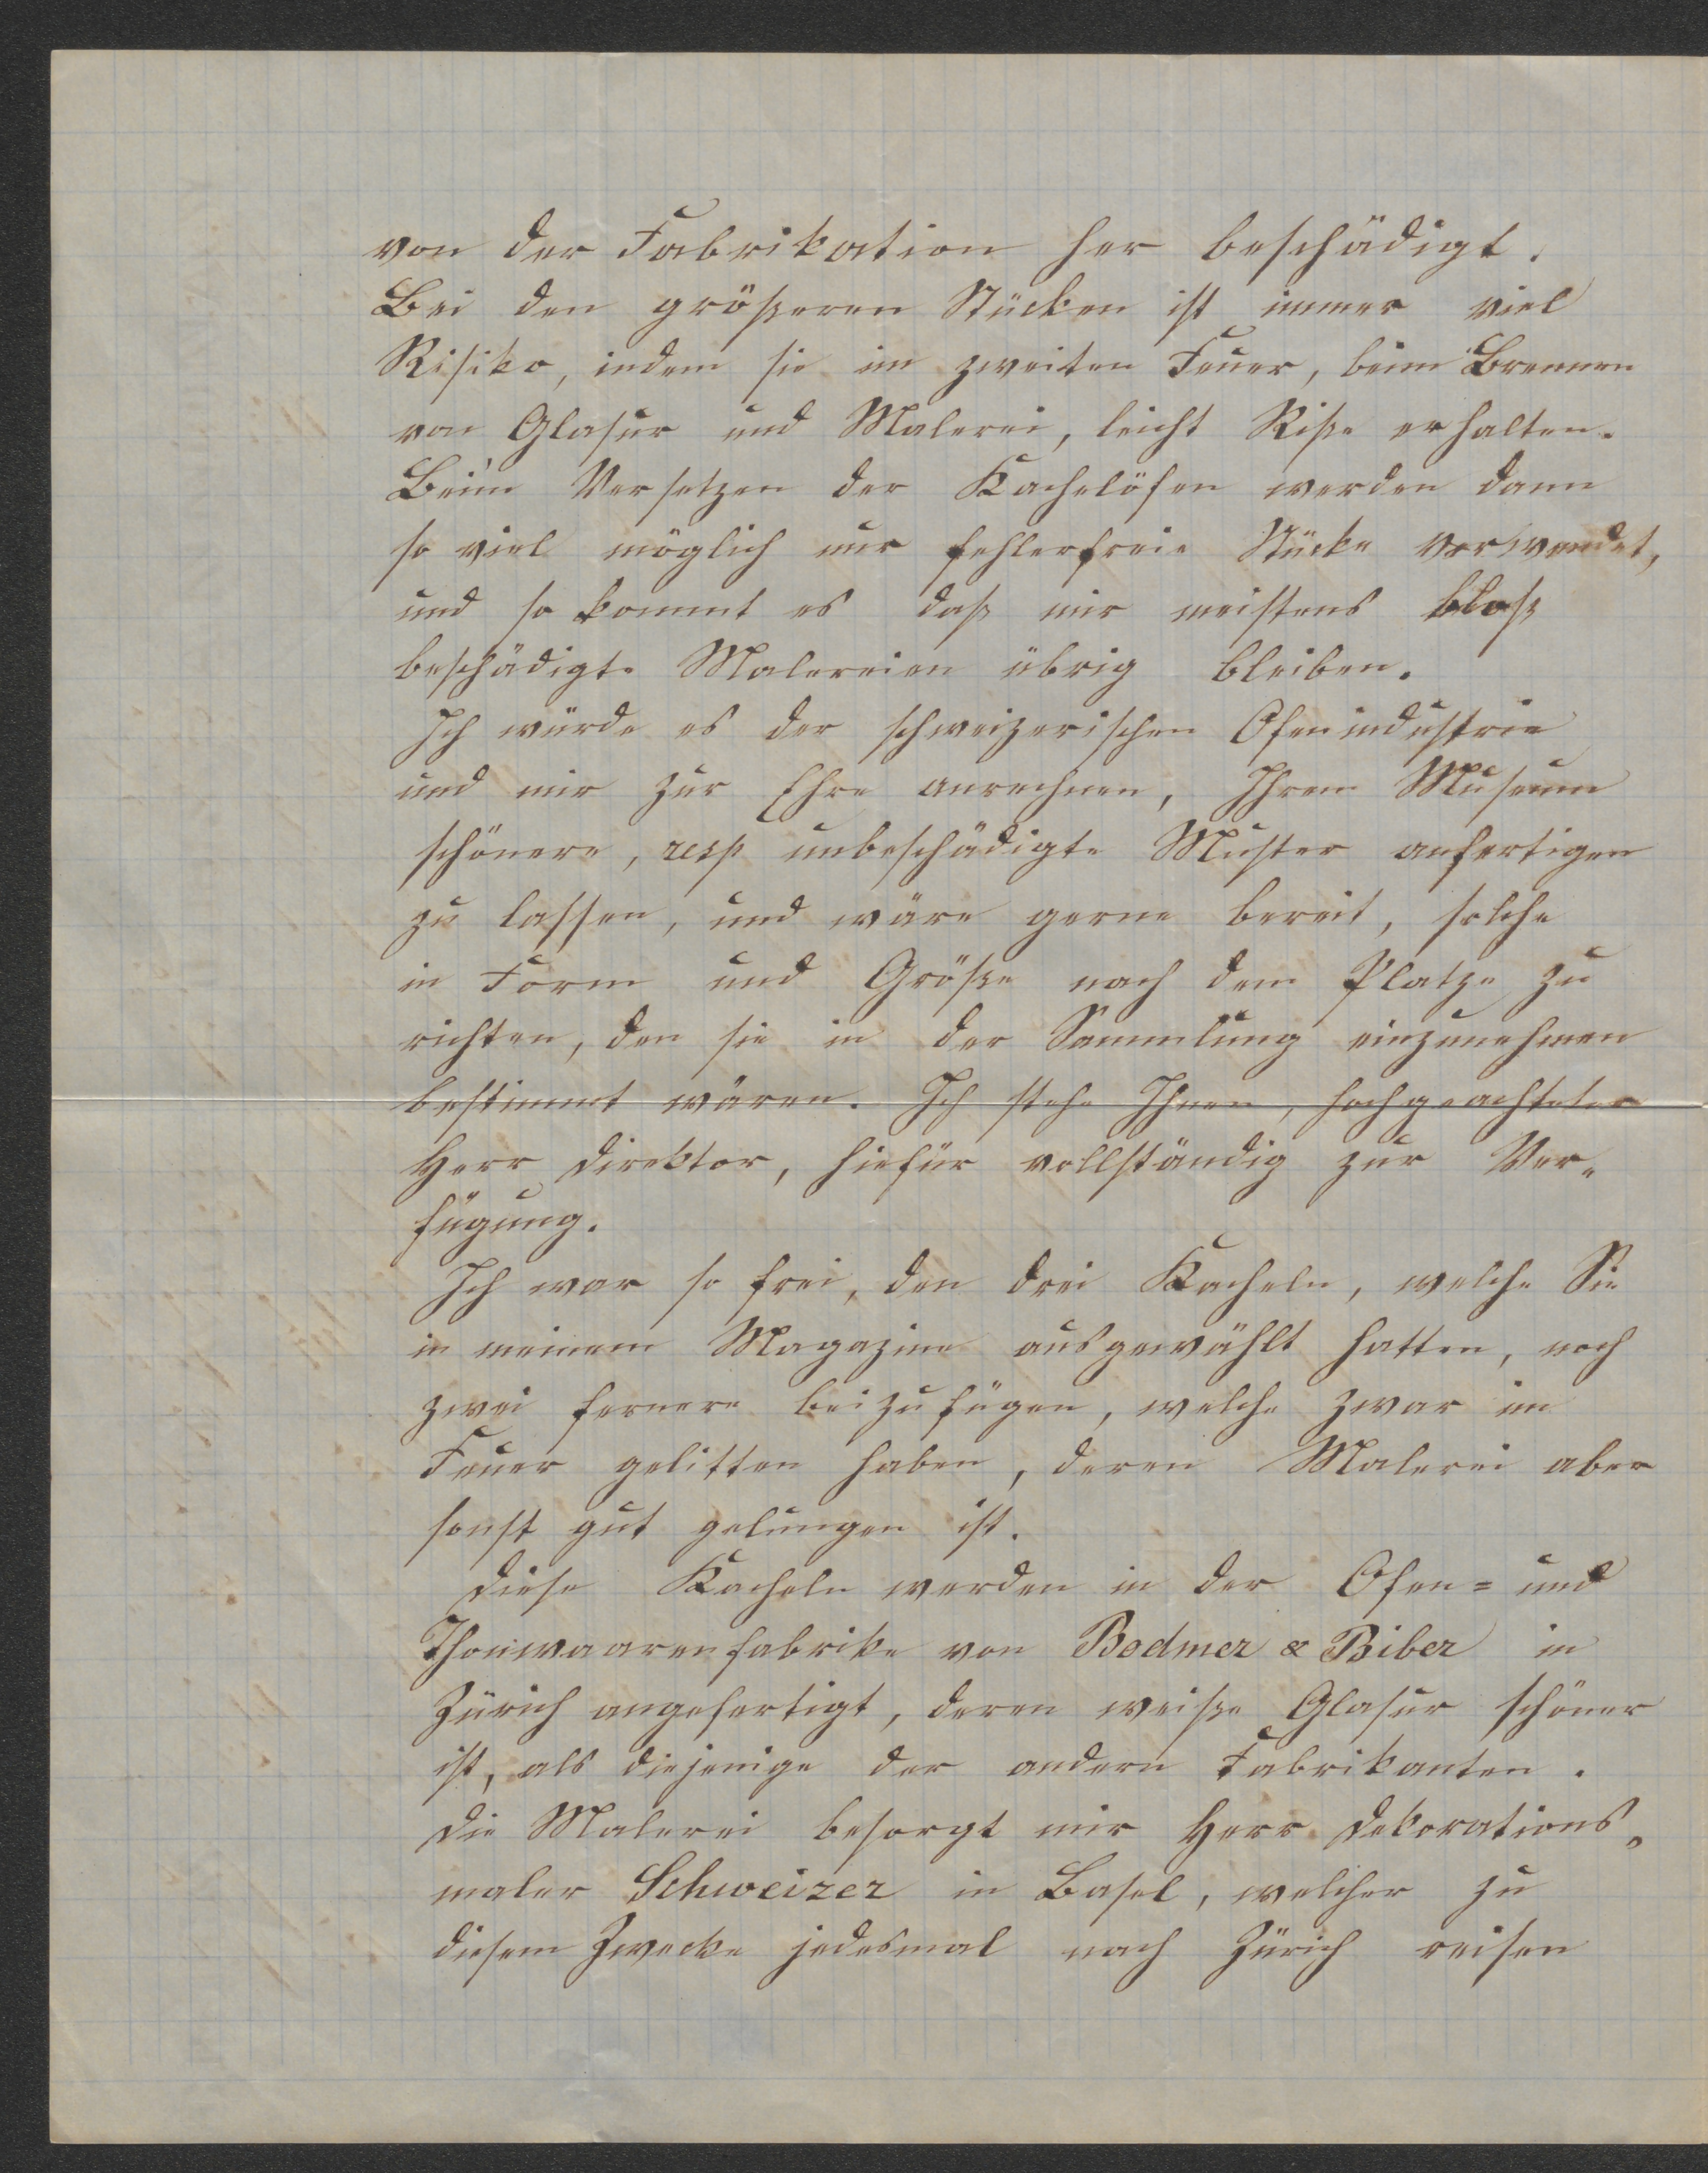 von der Fabrikation her beschädigt.
Bei den größeren Stücken ist immer viel
Risiko, indem sie im zweiten Feuer, beim Brennen
von Glasur und Malerei, leicht Riße erhalten.
Beim Versetzen der Kachelöfen werden dann
so viel möglich nur fehlerfreie Stücke verwendet,
und so kommt es daß mir meistens bloß
beschädigte Malereien übrig bleiben.
Ich würde es der schweizerischen Ofenindustrie
und mir zur Ehre anrechnen, Ihrem Museum
schönere, resp unbeschädigte Muster anfertigen
zu lassen, und wäre gerne bereit, solche
in Form und Größe nach dem Platze zu
richten, den sie in der Sammlung einzunehmen
bestimmt wären. Ich stehe Ihnen, hochgeachteter
Herr Direktor, hiefür vollständig zur Ver-
fügung.
Ich war so frei, den drei Kacheln, welche Sie
in meinem Magazine ausgewählt hatten, noch
zwei fernere beizufügen, welche zwar im
Feuer gelitten haben, deren Malerei aber
sonst gut gelungen ist.
Diese Kacheln werden in der Ofen= und
Thonwaarenfabrike von Bodmer & Biber in
Zürich angefertigt, deren weiße Glasur schöner
ist, als diejenige der andern Fabrikanten.
Die Malerei besorgt mir Herr Dekorations-
maler Schweizer in Basel, welcher zu
diesem Zwecke jedesmal nach Zürich reisen